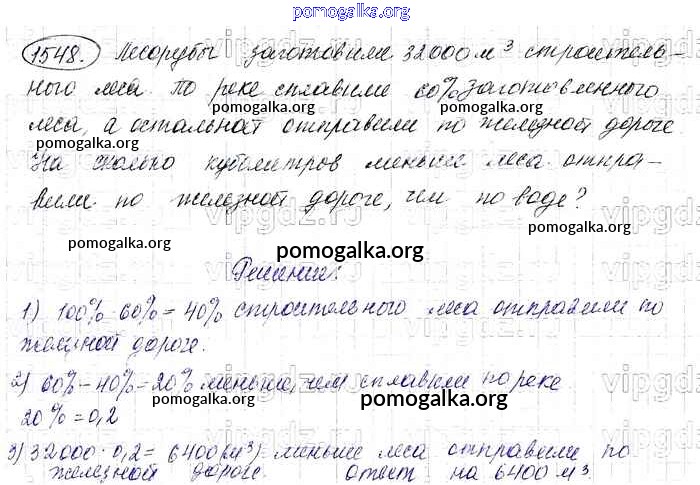 pomogalka.org
1548. Лесорубы заготовили 32000 м³ строитель-
ного леса. По реке сплавили 60% заготовленного
pomogalka.org pomogalka.org
леса, а остальной отправили по железной дороге.
pomogalka.org pomogalka.org
На сколько кубометров меньше леса отпра-
вили по железной дороге, чем по воде?
pomogalka.org pomogalka.org pomogalka.org
Решение:
1) 100%-60%=40% строительного леса отправили по
железной дороге.
2) 60%-40%=20% меньше, чем сплавили по реке
pomogalka.org pomogalka.org
20%=0,2
3) 32000·0,2=6400(м³) меньше леса отправили по
железной дороге. ответ на 6400 м³.